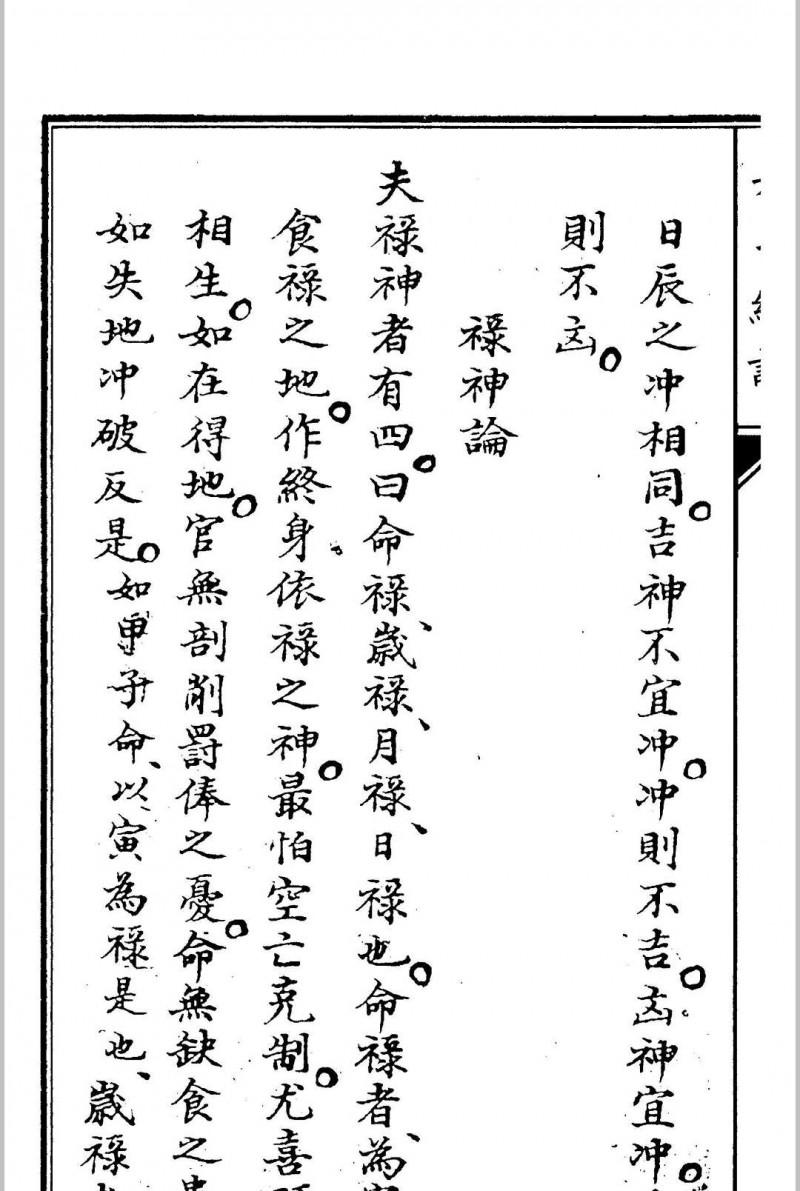 日辰之冲相同。吉神不宜冲。冲則不吉。凶神宜冲。
則不凶。
祿神論
夫祿神者有四。曰命祿、歲祿、月祿、日祿也。命祿者、為
食祿之地。作終身依祿之神。最怕空亡克制。尤喜
相生。如在得地。官無剖削罸俸之憂。命無缺食之
如失地冲破反是。如甲子命、以寅為祿是也、歲祿